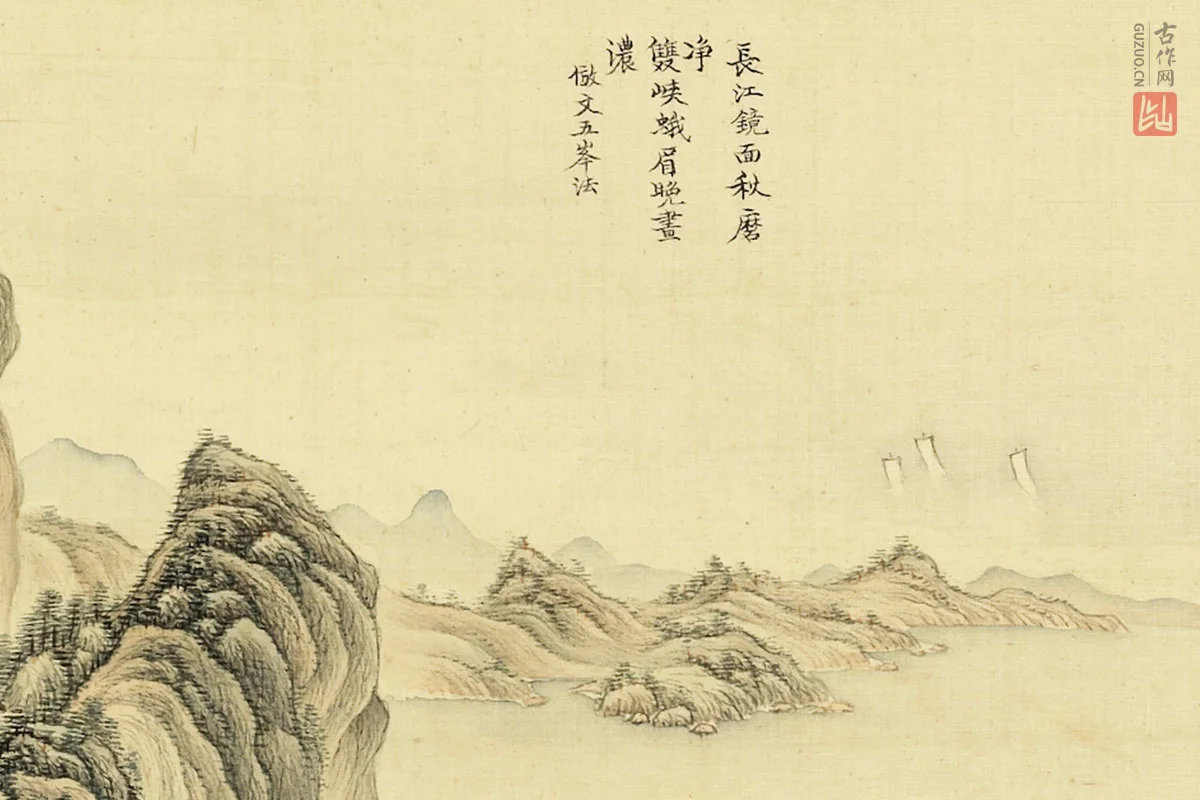 長江鏡面秋磨
净
雙峡蛾眉晚畫
濃
倣文五峯法
古作网
GUZUO.CN